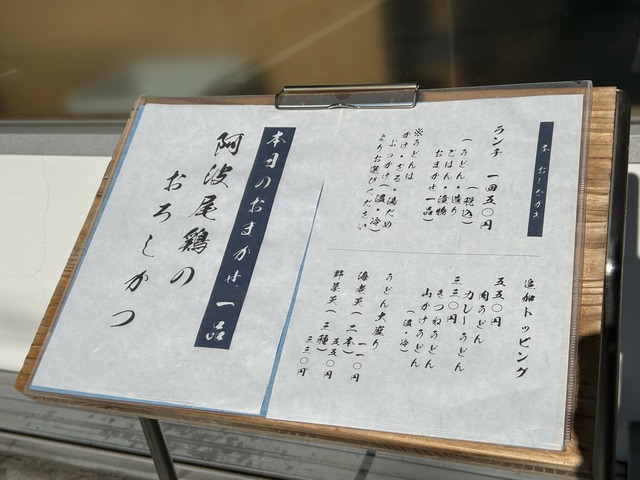 おしながき
ランチ 一四五〇円
(税込)
(うどん・造り
ごはん・漬物
おまかせ一品)
※うどんは
かけ・ざる・湯だめ
ぶっかけ(温・冷)
よりお選びください
追加トッピング
五五〇円
肉うどん
カレーうどん
三三〇円
きつねうどん
山かけうどん
(温・冷)
うどん大盛り
一一〇円
海老天(二本)
五五〇円
野菜天(三種)
三三〇円
本日のおまかせ一品
阿波尾鶏の
おろしかつ